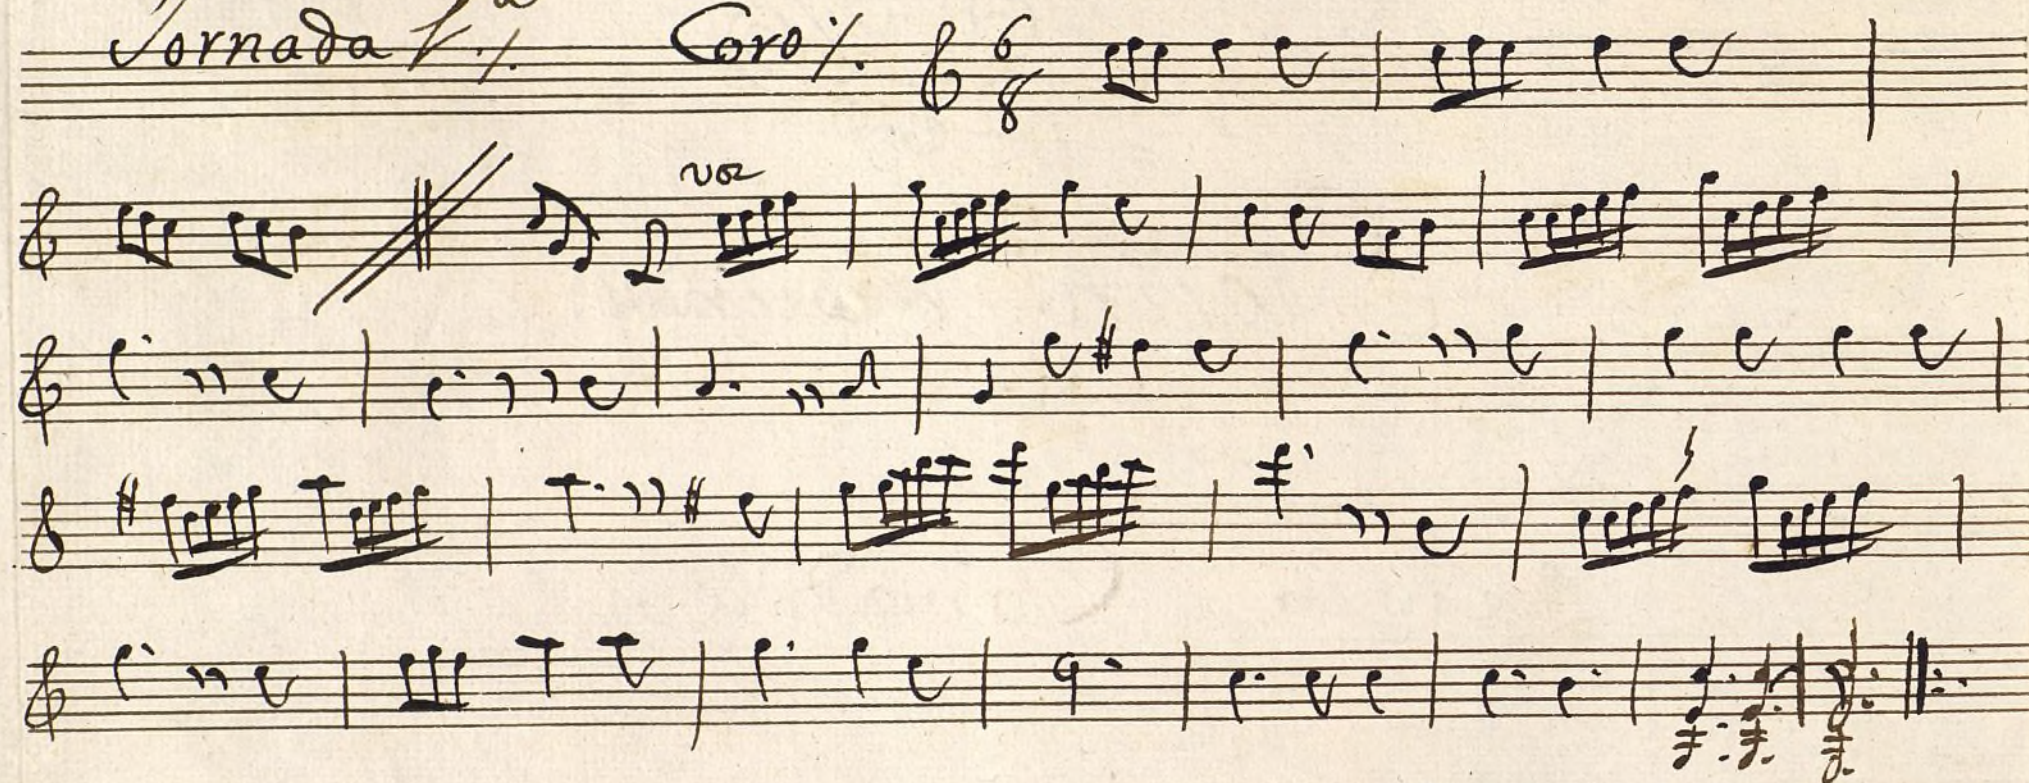 Jornada 1.ª Coro
6
8
voz